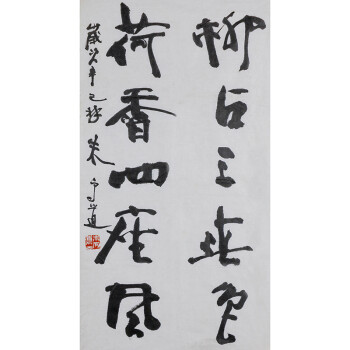 柳占三春色
荷香四座風
歲次辛巳秋